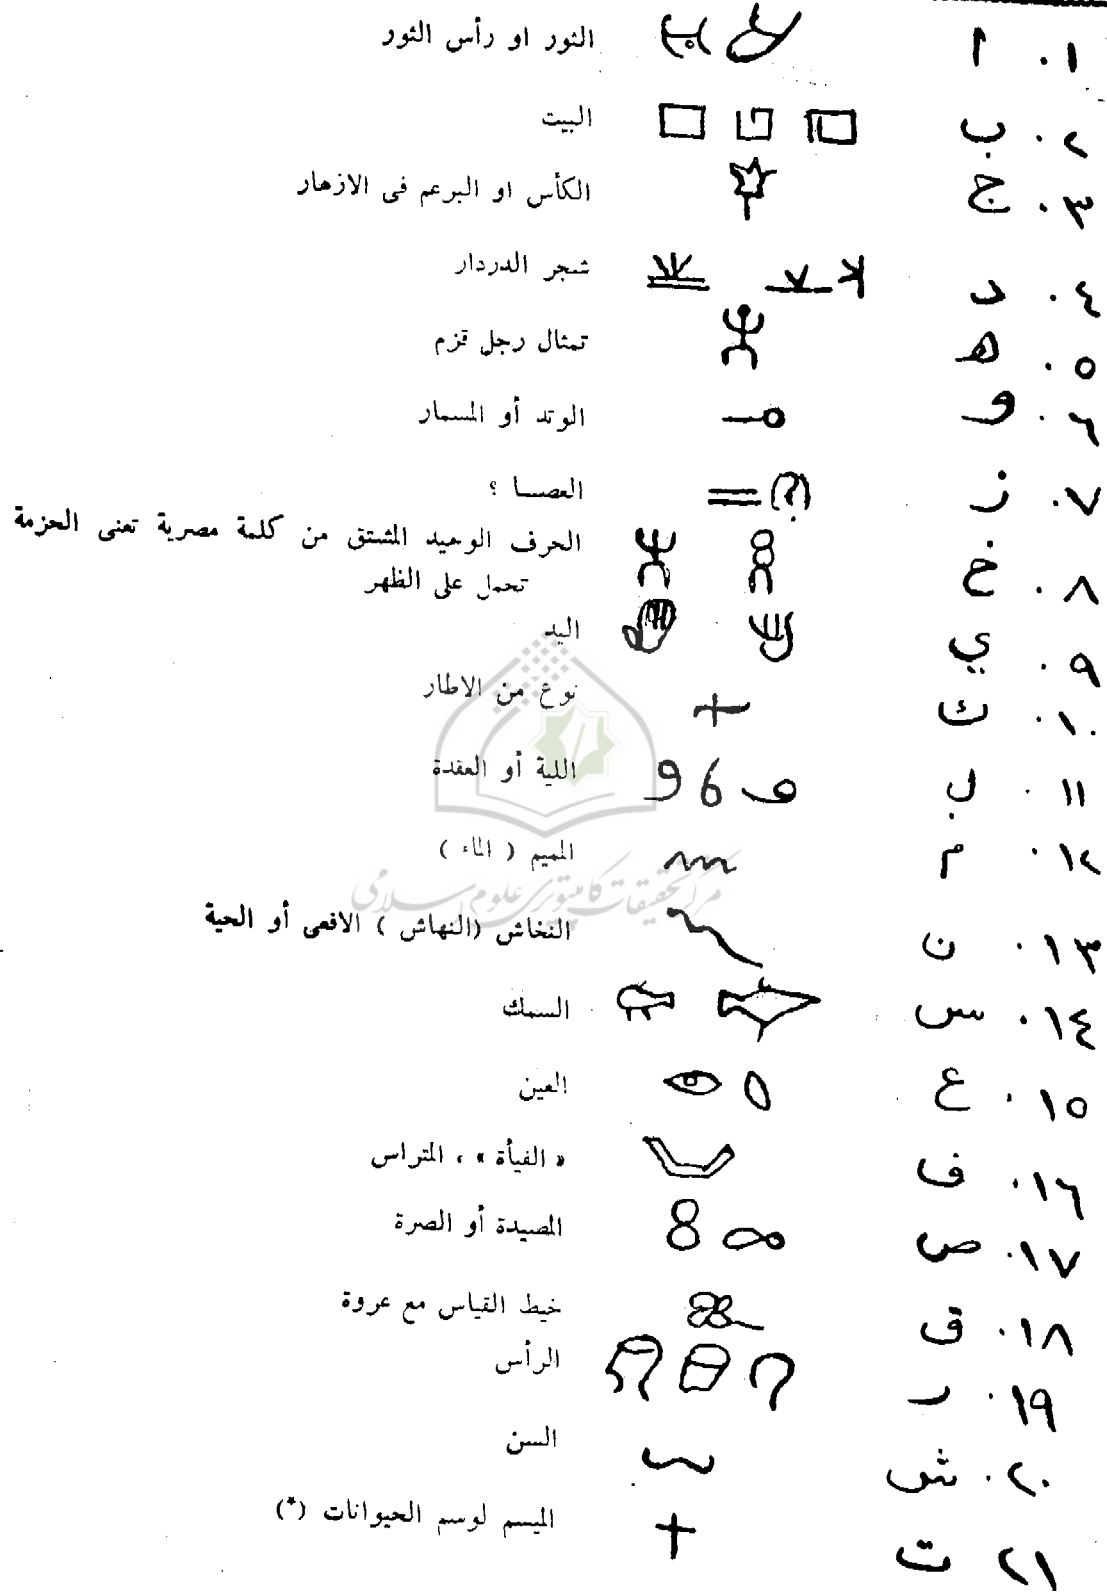 ١. ا الثور او رأس الثور
٢. ب البيت
٣. ج الكأس او البرعم فى الازهار
٤. د شجر الدردار
٥. ه تمثال رجل قزم
٦. و الوتد أو المسمار
٧. ز (؟) العصا ؟
٨. خ الحرف الوحيد المشتق من كلمة مصرية تعنى الحزمة
تحمل على الظهر
٩. ي اليد
١٠. ك نوع من الاطار
١١. ل اللية أو العقدة
١٢. م الميم ( الماء )
مركز تحقيقات كامپيوترى علوم اسلامى
١٣. ن النخاش (النهاش ) الافعى أو الحية
١٤. س السمك
١٥. ع العين
١٦. ف « الفيأة » ، المتراس
١٧. ص المصيدة أو الصرة
١٨. ق خيط القياس مع عروة
١٩. ر الرأس
٢٠. ش السن
٢١ ت الميسم لوسم الحيوانات (*)